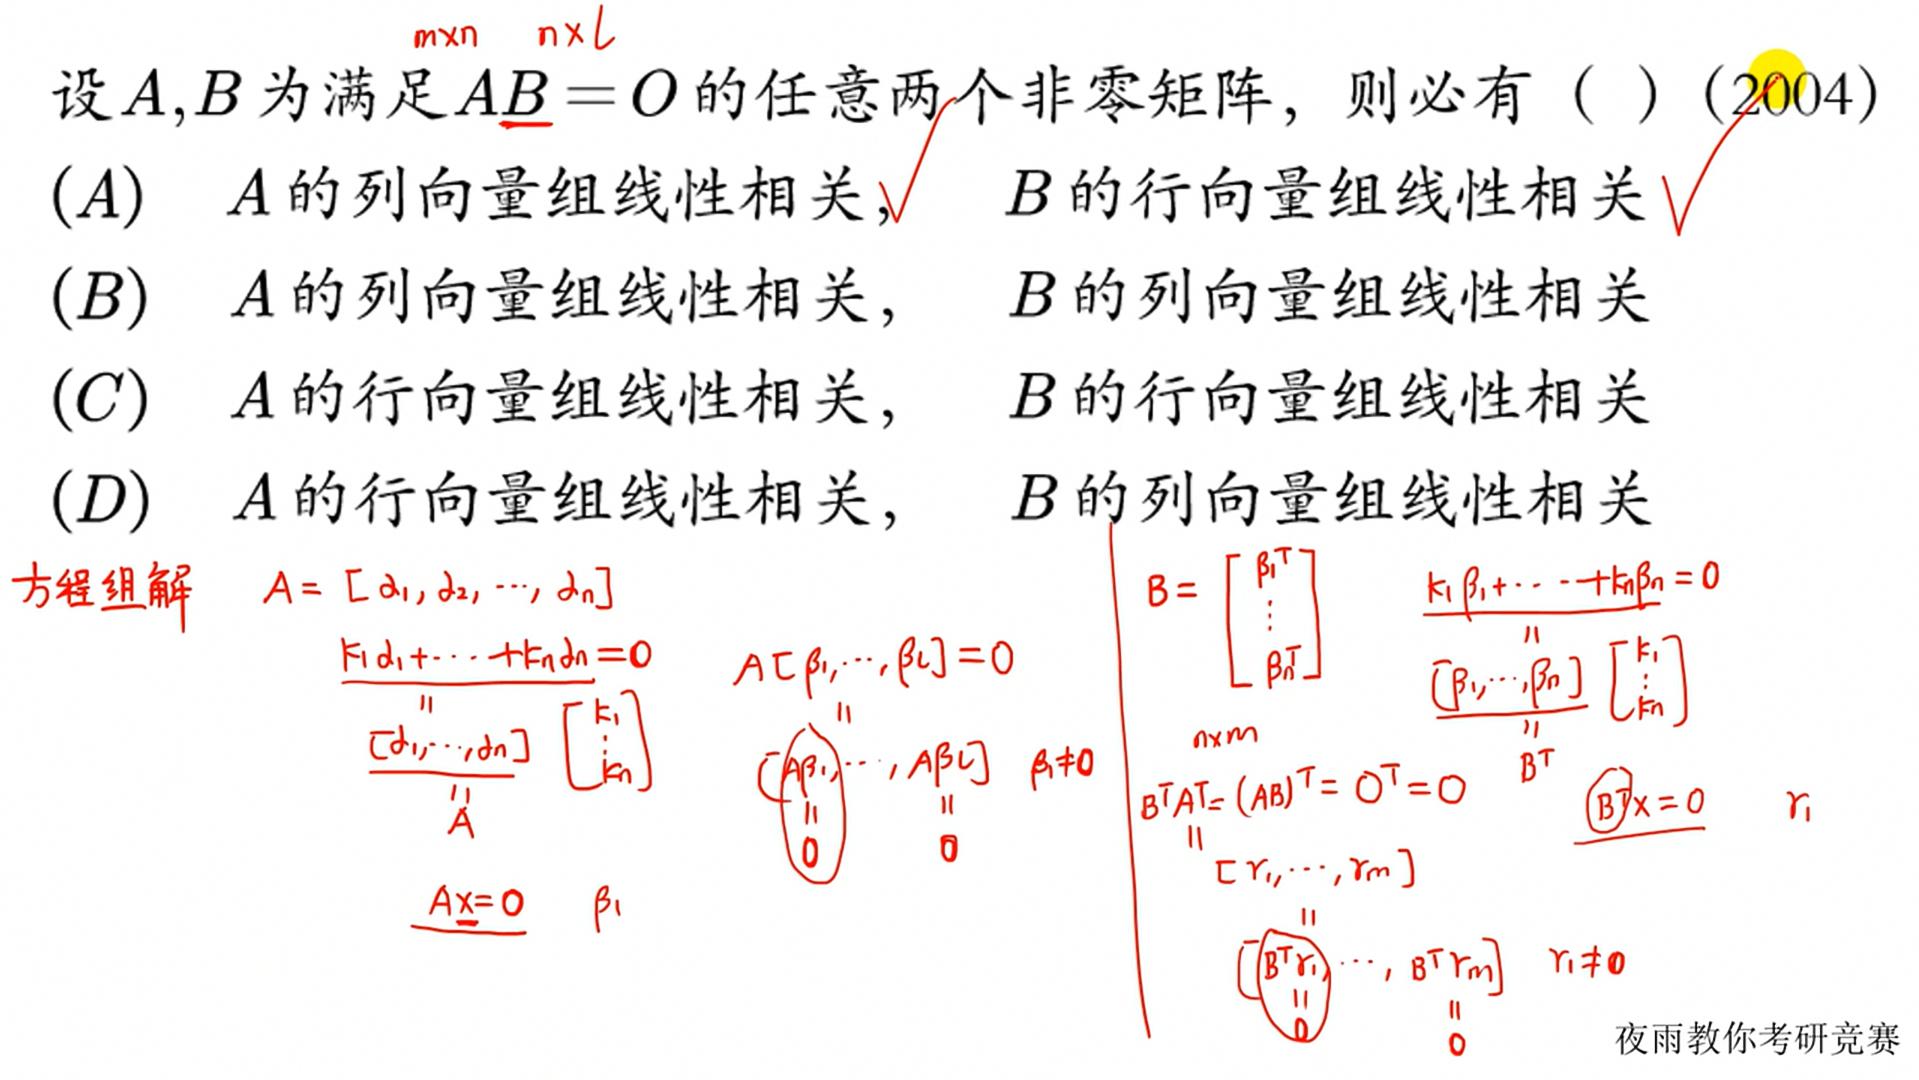 m×n n×l
设A,B为满足AB=O的任意两个非零矩阵，则必有（ ）(2004)
(A) A的列向量组线性相关, B的行向量组线性相关
(B) A的列向量组线性相关， B的列向量组线性相关
(C) A的行向量组线性相关， B的行向量组线性相关
(D) A的行向量组线性相关， B的列向量组线性相关
方程组解 A = [α₁, α₂, ⋯, αₙ]
k₁α₁+⋯+kₙαₙ=0
=
[α₁,⋯,αₙ] [k₁ ⋮ kₙ]
=
A
Ax=0 β₁
A[β₁,⋯,βl]=0
=
[Aβ₁,⋯,Aβl] β₁≠0
= =
0 0
B= [β₁ᵀ ⋮ βₙᵀ] k₁β₁+⋯+kₙβₙ=0
=
[β₁,⋯,βₙ] [k₁ ⋮ kₙ]
=
Bᵀ
n×m
BᵀAᵀ=(AB)ᵀ=Oᵀ=0 Bᵀx=0 r₁
=
[r₁,⋯,rm]
=
[Bᵀr₁,⋯,Bᵀrm] r₁≠0
= =
0 0
夜雨教你考研竞赛